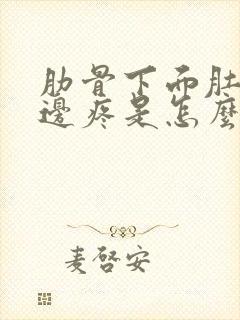 肋骨下而肚
邊疼是怎麼
麦啓安